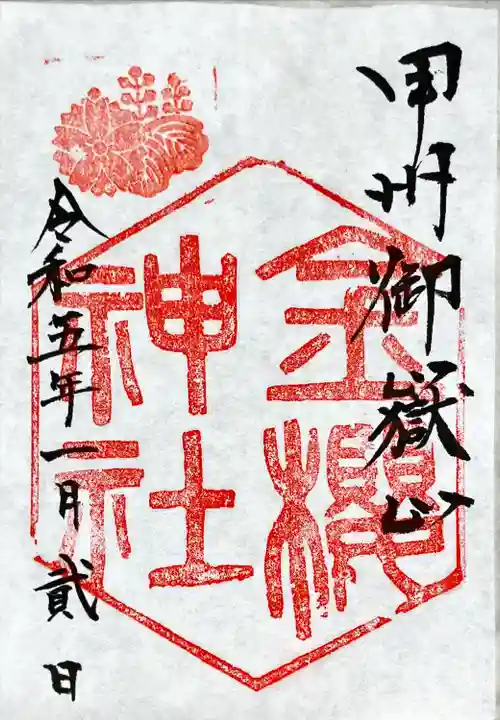 甲州御嶽山
金櫻
神社
令和五年一月貳日